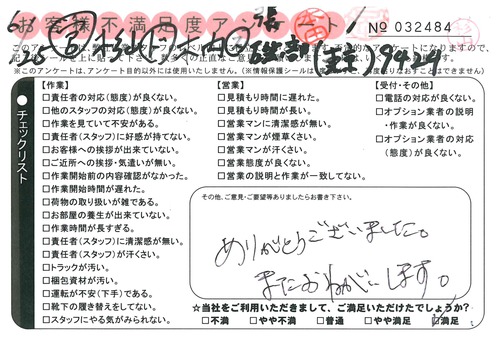 お客様不満足度アンケート
No 032484
※このアンケートは、アンケート目的以外には使用いたしません。
チェックリスト
【作業】
□責任者の対応(態度)が良くない。
□他のスタッフの対応(態度)が良くない。
□作業を見ていて不安がある。
□責任者(スタッフ)に好感が持てない。
□お客様への挨拶が出来ていない。
□ご近所への挨拶・気遣いが無い。
□作業開始前の内容確認がなかった。
□作業開始時間が遅れた。
□荷物の取り扱いが雑である。
□お部屋の養生が出来ていない。
□作業時間が長すぎる。
□責任者(スタッフ)に清潔感が無い。
□責任者(スタッフ)が汗くさい。
□トラックが汚い。
□梱包資材が汚い。
□運転が不安(下手)である。
□靴下の履き替えをしてない。
□スタッフにやる気がみられない。
【営業】
□見積もり時間に遅れた。
□見積もり時間が長い。
□営業マンに清潔感が無い。
□営業マンが煙草くさい。
□営業マンが汗くさい。
□営業態度が良くない。
□営業の説明と作業が一致してない。
【受付・その他】
□電話の対応が良くない。
□オプション業者の説明・作業が良くない。
□オプション業者の対応(態度)が良くない。
その他、ご意見・ご要望等ありましたらお書き下さい。
ありがとうございました。
またおねがいします。
☆当社をご利用いただきまして、ご満足いただけたでしょうか?
□不満 □やや不満 □普通 □やや満足 □満足